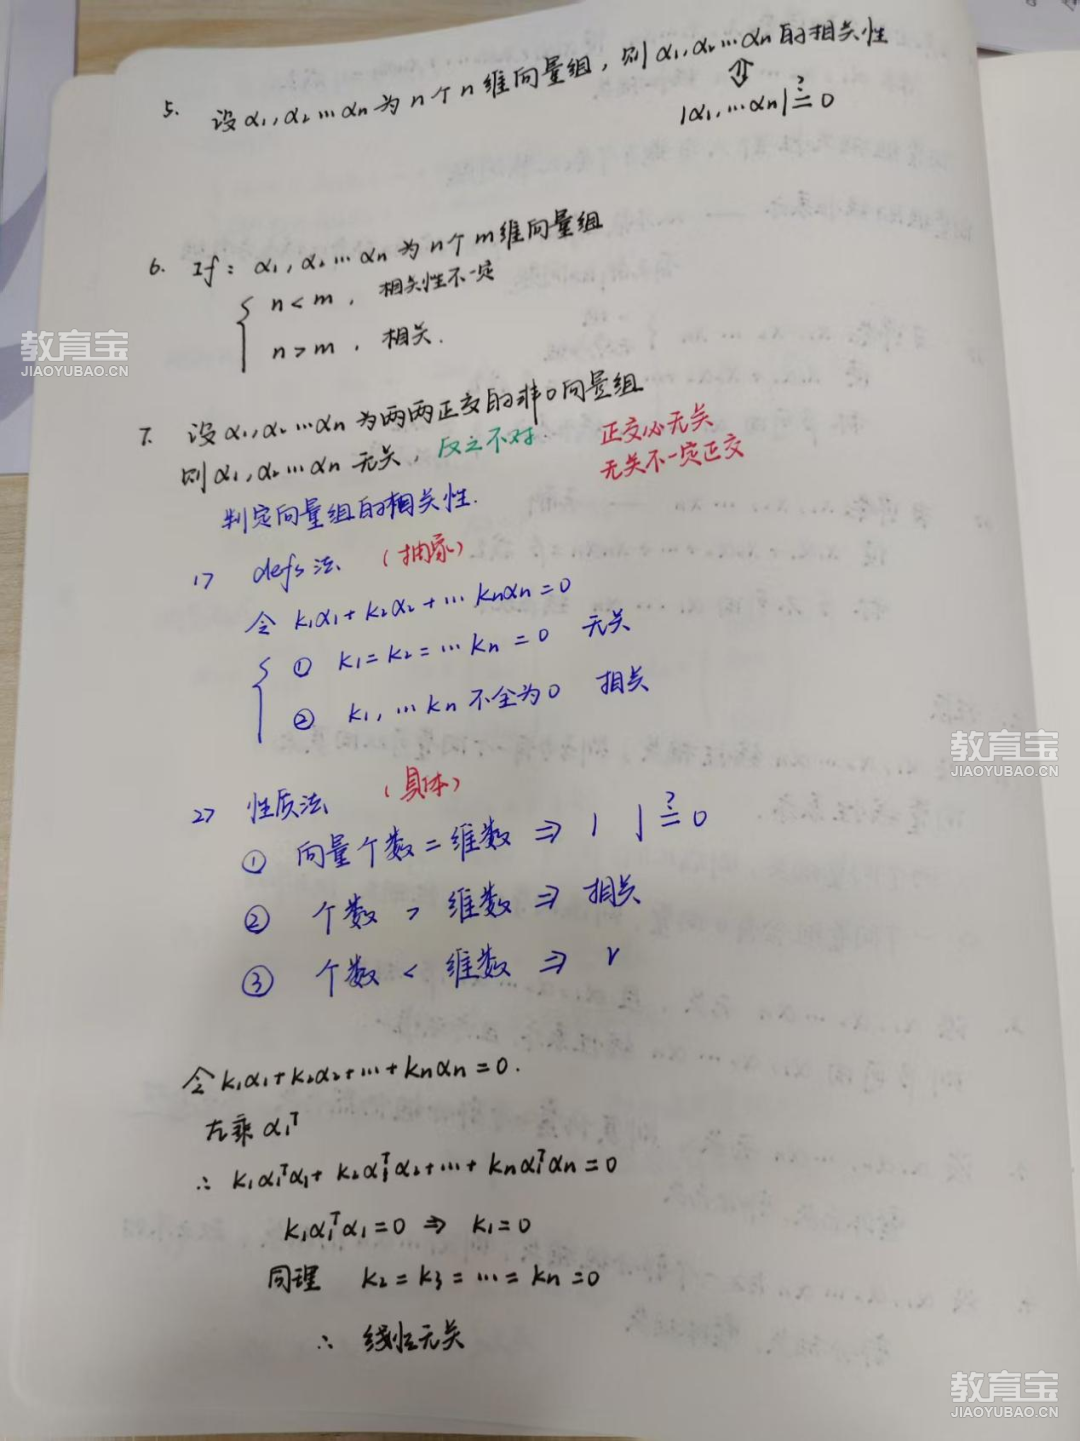 5. 设α₁,α₂…αn为n个n维向量组,则α₁,α₂…αn的相关性
⇕
|α₁,…αn| ≟ 0
6. If: α₁,α₂…αn为n个m维向量组
{ n<m, 相关性不一定
n>m, 相关.
教育宝
JIAOYUBAO.CN
7. 设α₁,α₂…αn为两两正交的非0向量组
则α₁,α₂…αn无关, 反之不对.
正交必无关
无关不一定正交
判定向量组的相关性.
1> defs法 (抽象)
令 k₁α₁+k₂α₂+…knαn=0
{ ① k₁=k₂=…kn=0 无关
② k₁,…kn不全为0 相关
教育宝
JIAOYUBAO.CN
2> 性质法 (具体)
① 向量个数=维数 ⇒ | | ≟ 0
② 个数 > 维数 ⇒ 相关
③ 个数 < 维数 ⇒ r
令k₁α₁+k₂α₂+…+knαn=0.
左乘 α₁ᵀ
∴ k₁α₁ᵀα₁+k₂α₁ᵀα₂+…+knα₁ᵀαn=0
k₁α₁ᵀα₁=0 ⇒ k₁=0
同理 k₂=k₃=…=kn=0
∴ 线性无关
教育宝
JIAOYUBAO.CN